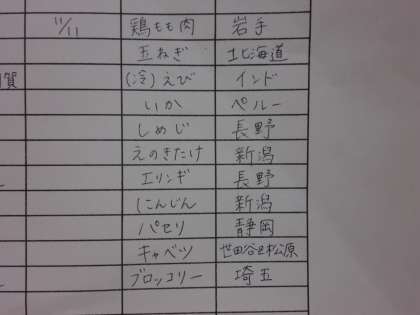 11/11 鶏もも肉 岩手
玉ねぎ 北海道
賀 (冷)えび インド
いか ペルー
しめじ 長野
えのきたけ 新潟
エリンギ 長野
にんじん 新潟
パセリ 静岡
キャベツ 世田谷区松原
ブロッコリー 埼玉